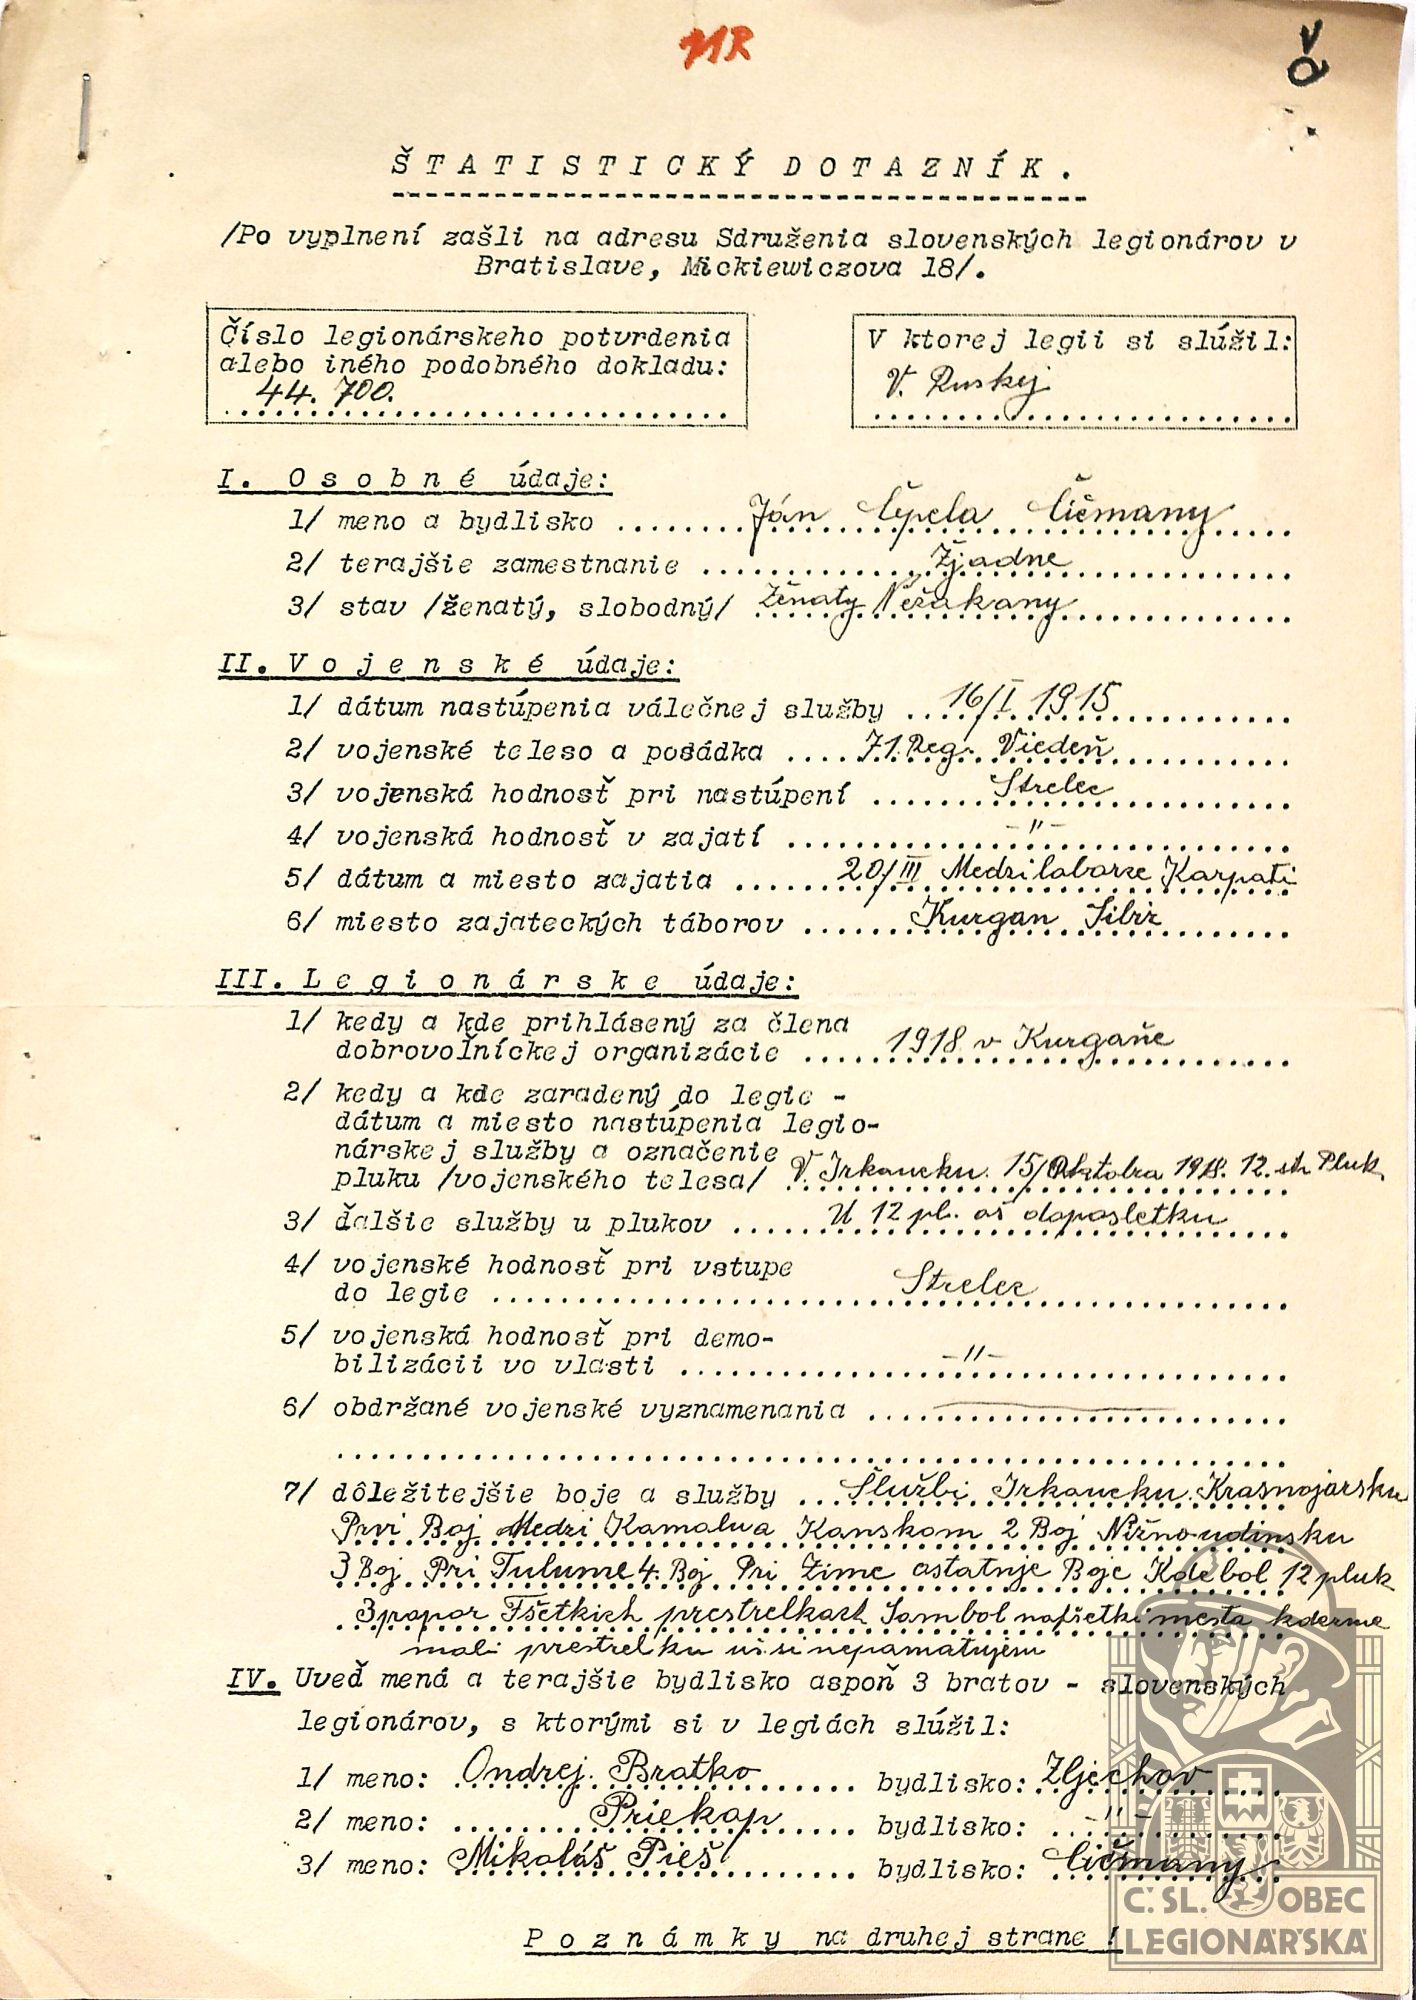 MR
ŠTATISTICKÝ DOTAZNÍK.
/Po vyplnení zašli na adresu Sdruženia slovenských legionárov v
Bratislave, Mickiewiczova 18/.
Číslo legionárskeho potvrdenia
alebo iného podobného dokladu:
44.700.
V ktorej legii si slúžil:
V. Ruskej
I. Osobné údaje:
1/ meno a bydlisko ........ Ján Čepela Čičmany
2/ terajšie zamestnanie ........ Žjadne
3/ stav /ženatý, slobodný/ Ženaty Nežakany
II. Vojenské údaje:
1/ dátum nastúpenia válečnej služby .... 16/I 1915
2/ vojenské teleso a posádka .... 71. Reg. Viedeň
3/ vojenská hodnosť pri nastúpení ........ Strelec
4/ vojenská hodnosť v zajatí ........ -"-
5/ dátum a miesto zajatia ...... 20/III Medzilaborze Karpati
6/ miesto zajateckých táborov ...... Kurgan Sibir
III. Legionárske údaje:
1/ kedy a kde prihlásený za člena
dobrovoľníckej organizácie .... 1918 v Kurgaňe
2/ kedy a kde zaradený do legie -
dátum a miesto nastúpenia legio-
nárskej služby a označenie
pluku /vojenského telesa/ V. Irkaucku 15/Oktobra 1918. 12. str Pluk
3/ ďalšie služby u plukov ...... U 12 pl. aš doposletku
4/ vojenské hodnosť pri vstupe
do legie ........ Strelec
5/ vojenská hodnosť pri demo-
bilizácii vo vlasti ........ -"-
6/ obdržané vojenské vyznamenania ........
7/ dôležitejšie boje a služby ... Službi Irkaucku Krasnojarsku
Prvi Boj Medzi Kamalua Kanskom 2 Boj Nižnoudinsku
3 Boj Pri Tulume 4. Boj Pri Zime ostatnje Boje Kde bol 12 pluk
3 prapor Fšetkich prestrelkach Sam bol napšetki mesta kderme
mali prestrelku uš si nepamatujem
IV. Uveď mená a terajšie bydlisko aspoň 3 bratov - slovenských
legionárov, s ktorými si v legiách slúžil:
1/ meno: Ondrej Bratko ........ bydlisko: Zljechov
2/ meno: ........ Priekop ...... bydlisko: -"-
3/ meno: Mikoláš Pieš ........ bydlisko: Čičmany
Poznámky na druhej strane !
Č.SL. OBEC
LEGIONÁŘSKÁ